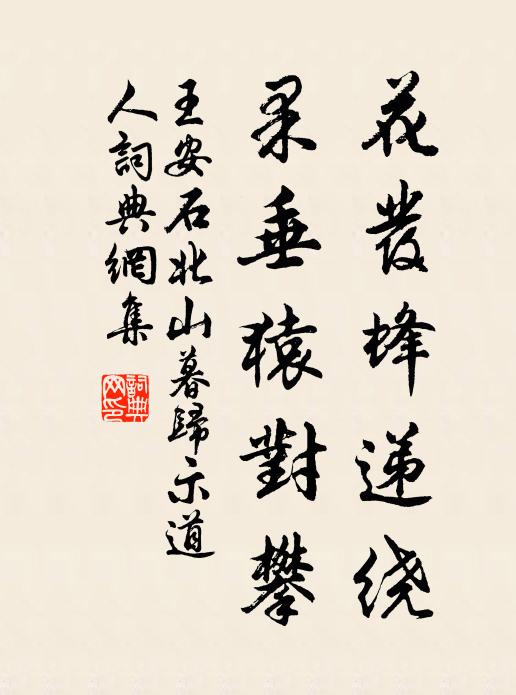 花發蜂递绕
果垂猿對攀
王安石北山暮歸示道
人詞典網集
詞典
网印